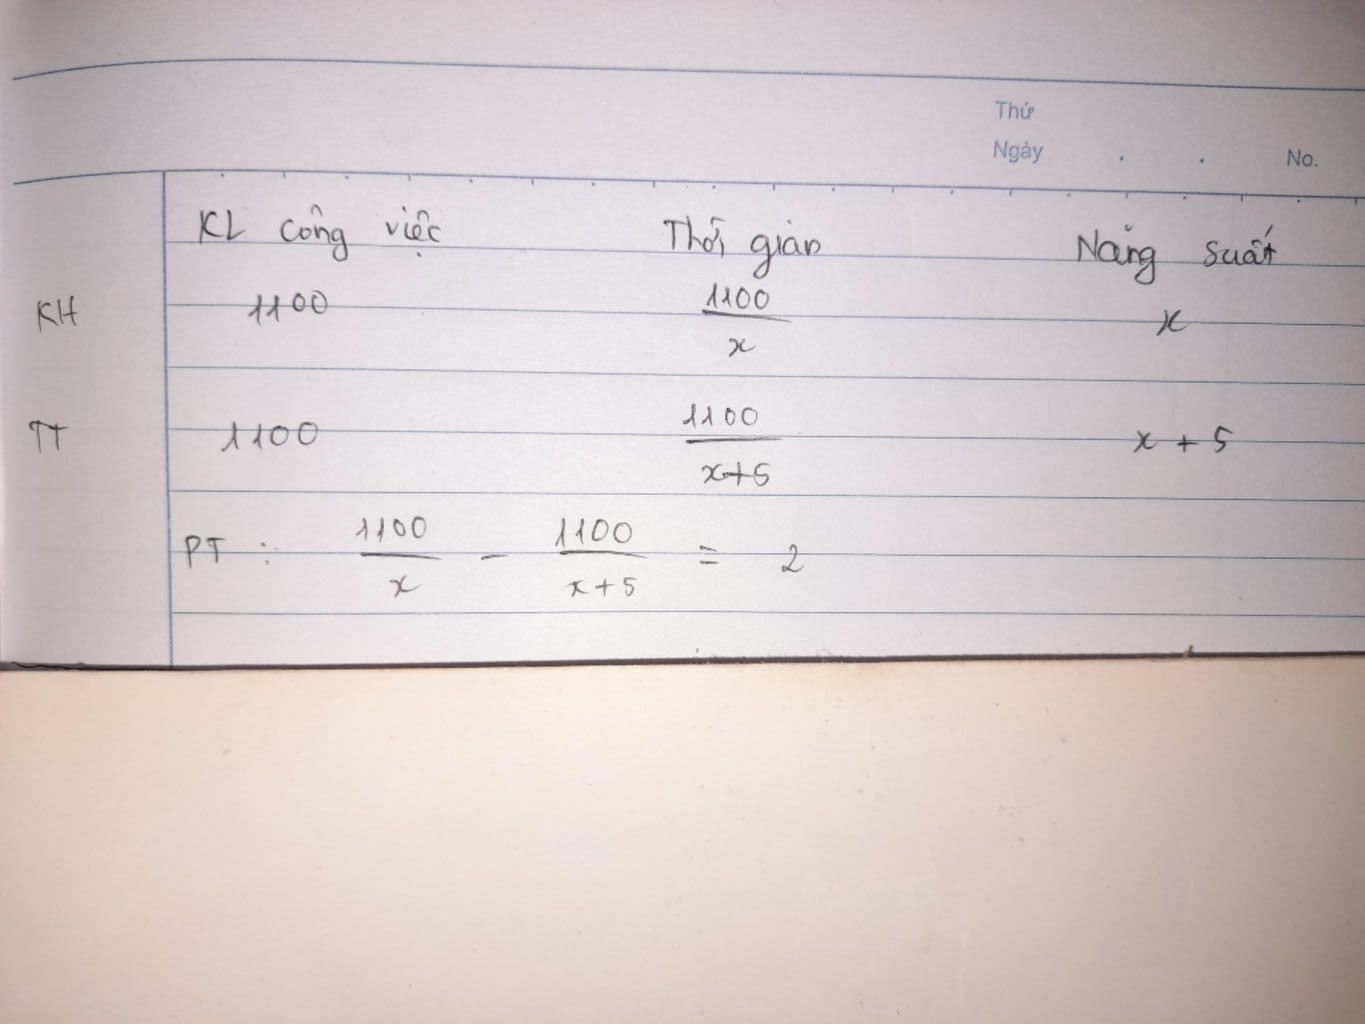 Thứ
Ngày . . No.
KL công việc Thời gian Năng suất
KH 1100 1100/x x
TT 1100 1100/x+5 x + 5
PT : 1100/x - 1100/x+5 = 2